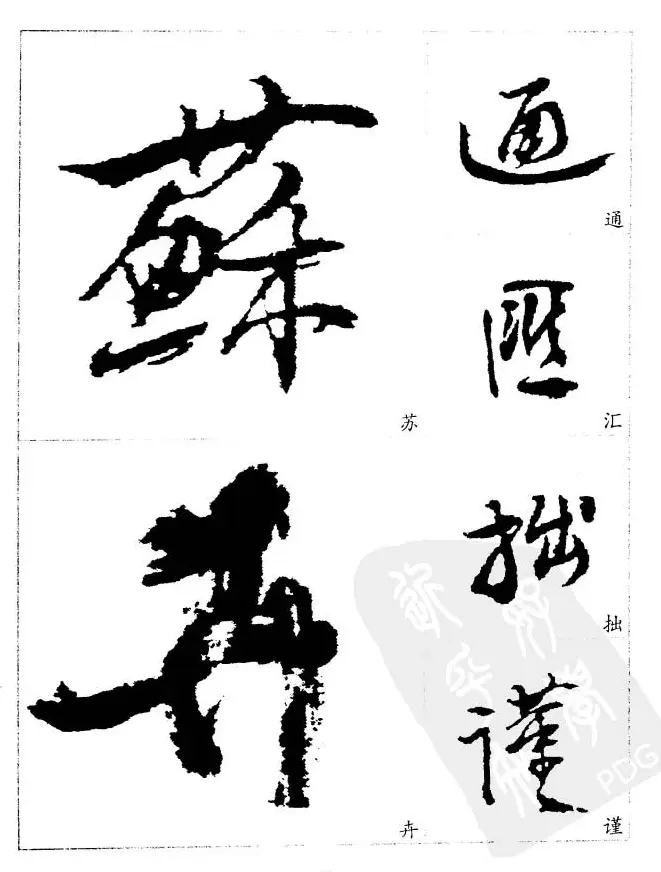 蘇
苏
卉
卉
通
通
匯
汇
拙
拙
謹
谨
PDG